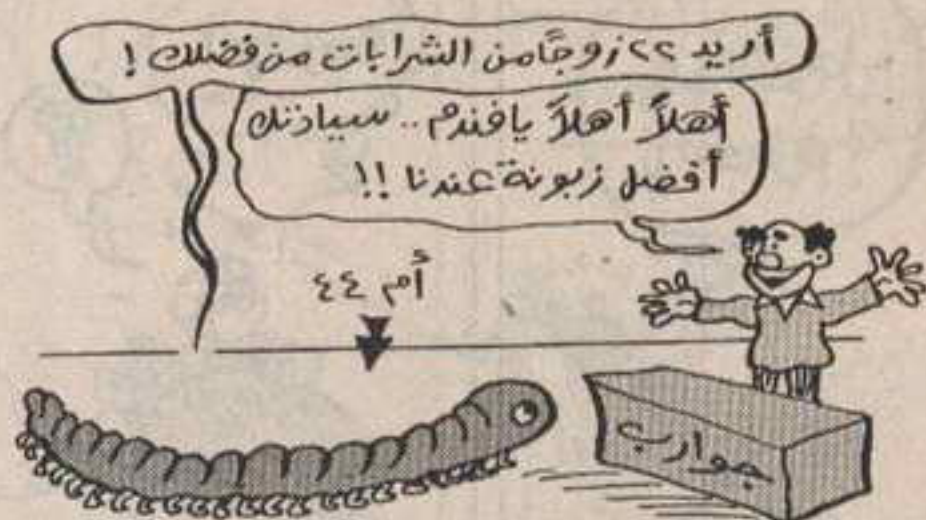 أريد ٢٢ زوجًا من الشرابات من فضلك !
أهلاً أهلاً يافندم .. سيادتك
أفضل زبونة عندنا !!
أم ٤٤
جوارب